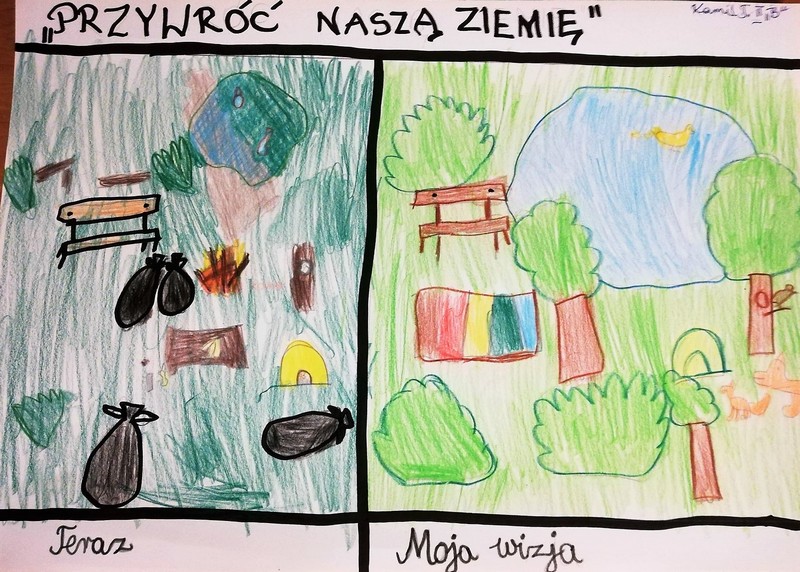 „PRZYWRÓĆ NASZĄ ZIEMIĘ"
Teraz
Moja wizja